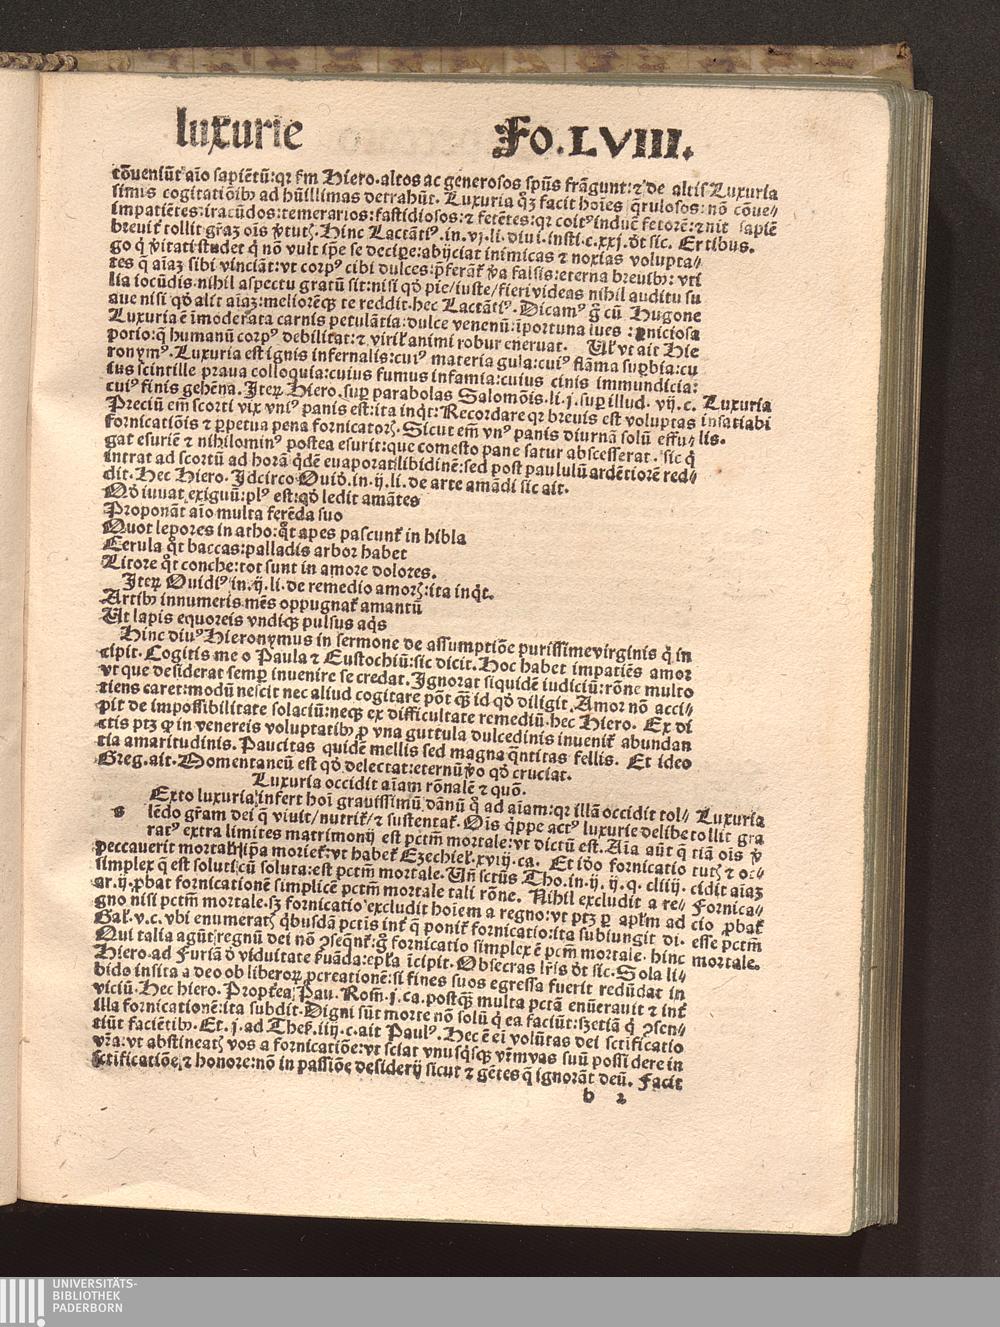 luxurie
Fo.LVIII.
cōueniūt aīo sapiētū: qr scd'm Hiero. altos ac generosos spūs frāgunt: ⁊ de altis Luxuria
simis cogitatiōibꝰ ad hūillimas detrahūt. Luxuria qꝫ facit hoīes q̄rulosos: nō cōue⸗
impatiētes: iracūdos: temerarios: fastidiosos: ⁊ fetētes: qr coitꝰ induc̄ fetorē: ⁊ nit sapiē
breuit̉ tollit gr̄aꝫ oīs v̉tutꝭ. Hinc Lactātiꝰ. in. vj. li. diui. insti. c. xxj. d̉t sic. Er tibus.
go q̉ v̉itati studet q̉ nō vult ip̄e se decipe: abijciat inimicas ⁊ noxias volupta⸗
tes q̄ aīaꝫ sibi vinciāt: vt corpꝰ cibi dulces: p̄ferāt̉ v̉a falsis: eterna breuibꝰ: vti
lia iocūdis. nihil aspectu gratū sit: nisi qd̉ pie/iuste/fieri videas nihil auditu su
aue nisi qd̉ alit aīaꝫ: meliorēqꝫ te reddit. hec Lactātiꝰ. Dicamꝰ g̉ cū Hugone
Luxuria ē īmoderata carnis petulātia: dulce venenū: īportuna lues: ꝑniciosa
potio: q̄ humanū corpꝰ debilitat: ⁊ virilꝭ animi robur eneruat. Ul̉ vt ait Hie
ronymꝰ. Luxuria est ignis infernalis: cuiꝰ materia gula: cuiꝰ flāma suꝑbia: cu
ius scintille praua colloquia: cuius fumus infamia: cuius cinis immundicia:
cuiꝰ finis gehēna. Iteꝝ Hiero. suꝑ parabolas Salomōis. li. j. suꝑ illud. vij. c. Luxuria
Preciū em̄ scorti vix vniꝰ panis est: ita inq̉t: Recordare qr breuis est voluptas insatiabi
fornicatiōis ⁊ ꝑpetua pena fornicatorꝭ. Sicut em̄ vnꝰ panis diurnā solū effu⸗ lis.
gat esuriē ⁊ nihilominꝰ postea esurit: que comesto pane satur abscesserat. sic q̉
intrat ad scortū ad horā q̉dē euaporat libidinē: sed post paululū ardētiorē red⸗
dit. Hec Hiero. Idcirco Ouid̉. in. ij. li. de arte amādi sic ait.
Qd̉ iuuat exiguū: plꝰ est: qd̉ ledit amātes
Proponāt aīo multa ferēda suo
Quot lepores in atho: q̉t apes pascunt̉ in hibla
Cerula q̉t baccas: palladis arbor habet
Litore q̉t conche: tot sunt in amore dolores.
Iteꝝ Ouidiꝰ in. ij. li. de remedio amorꝭ: ita inq̉t.
Artibꝰ innumeris mēs oppugnat̉ amantū
Ut lapis equoreis vndiqꝫ pulsus aq̉s
Hinc diuꝰ Hieronymus in sermone de assumptiōe purissime virginis q̉ in
cipit. Cogitis me o Paula ⁊ Eustochiū: sic dicit. Hoc habet impatiēs amor
vt que desiderat semꝑ inuenire se credat. Ignorat siquidē iudiciū: rōne multo
tiens caret: modū nescit nec aliud cogitare pōt qꝫ id qd̉ diligit. Amor nō acci⸗
pit de impossibilitate solaciū: neqꝫ ex difficultate remediū. hec Hiero. Ex di
ctis ptꝫ ꝙ in venereis voluptatibꝰ ꝓ vna guttula dulcedinis inuenit̉ abundan
tia amaritudinis. Paucitas quidē mellis sed magna q̄ntitas fellis. Et ideo
Greg. ait. Momentaneū est qd̉ delectat: eternū v̉o qd̉ cruciat.
Luxuria occidit aīam rōnalē ⁊ quō.
s
Exto luxuria infert hoī grauissimū dānū q̉ ad aīam: qr illā occidit tol⸗ Luxuria
lēdo gr̄am dei q̄ viuit/nutrit̉/⁊ sustentat̉. Oīs q̉ppe actꝰ luxurie delibe tollit gra
ratꝰ extra limites matrimonij est pctm̄ mortale: vt dictū est. Aīa aūt q̄ tiā oīs v̉
peccauerit mortalit̉ ip̄a moriet̉: vt habet̉ Ezechiel̉. xviij. ca. Et iḋo fornicatio tutꝭ ⁊ oc⸗
simplex q̄ est soluti cū soluta: est pctm̄ mortale. Un̄ sctūs Tho. in. ij. ij. q. cliiij. cidit aīaꝫ
ar. ij. ꝓbat fornicationē simplicē pctm̄ mortale tali rōne. Nihil excludit a re⸗ Fornica⸗
gno nisi pctm̄ mortale. sꝫ fornicatio excludit hoīem a regno: vt ptꝫ ꝑ apl̄m ad cio ꝓbat̉
Gal̉. v. c. vbi enumeratꝭ q̉busdā pctīs int̉ q̄ ponit̉ fornicatio: ita subiungit di. esse pctm̄
Qui talia agūt regnū dei nō ꝯseq̄nt̉: g̉ fornicatio simplex ē pctm̄ mortale. hinc mortale.
Hiero. ad Furiā d̉ viduitate s̉uāda: epl̄a īcipit. Obsecras lr̄is d̉t sic. Sola li⸗
bido insita a deo ob liberoꝝ ꝓcreationē: si fines suos egressa fuerit redūdat in
viciū. Hec hiero. Propt̉ea Pau. Rom̄. j. ca. postqꝫ multa pctā enūerauit ⁊ int̉
illa fornicationē: ita subdit. Digni sūt morte nō solū q̉ ea faciūt: sꝫ etiā q̉ ꝯsen⸗
tiūt faciētibꝰ. Et. j. ad Thes̉. iiij. c. ait Paulꝰ. Hec ē eī volūtas dei sctificatio
vr̄a: vt abstineatꝭ vos a fornicatiōe: vt sciat vnusq̉sqꝫ vr̄m vas suū possidere in
sctificatiōe ⁊ honore: nō in passiōe desiderij sicut ⁊ gētes q̄ ignorāt deū. Facit
b 2
UNIVERSITÄTS-
BIBLIOTHEK
PADERBORN